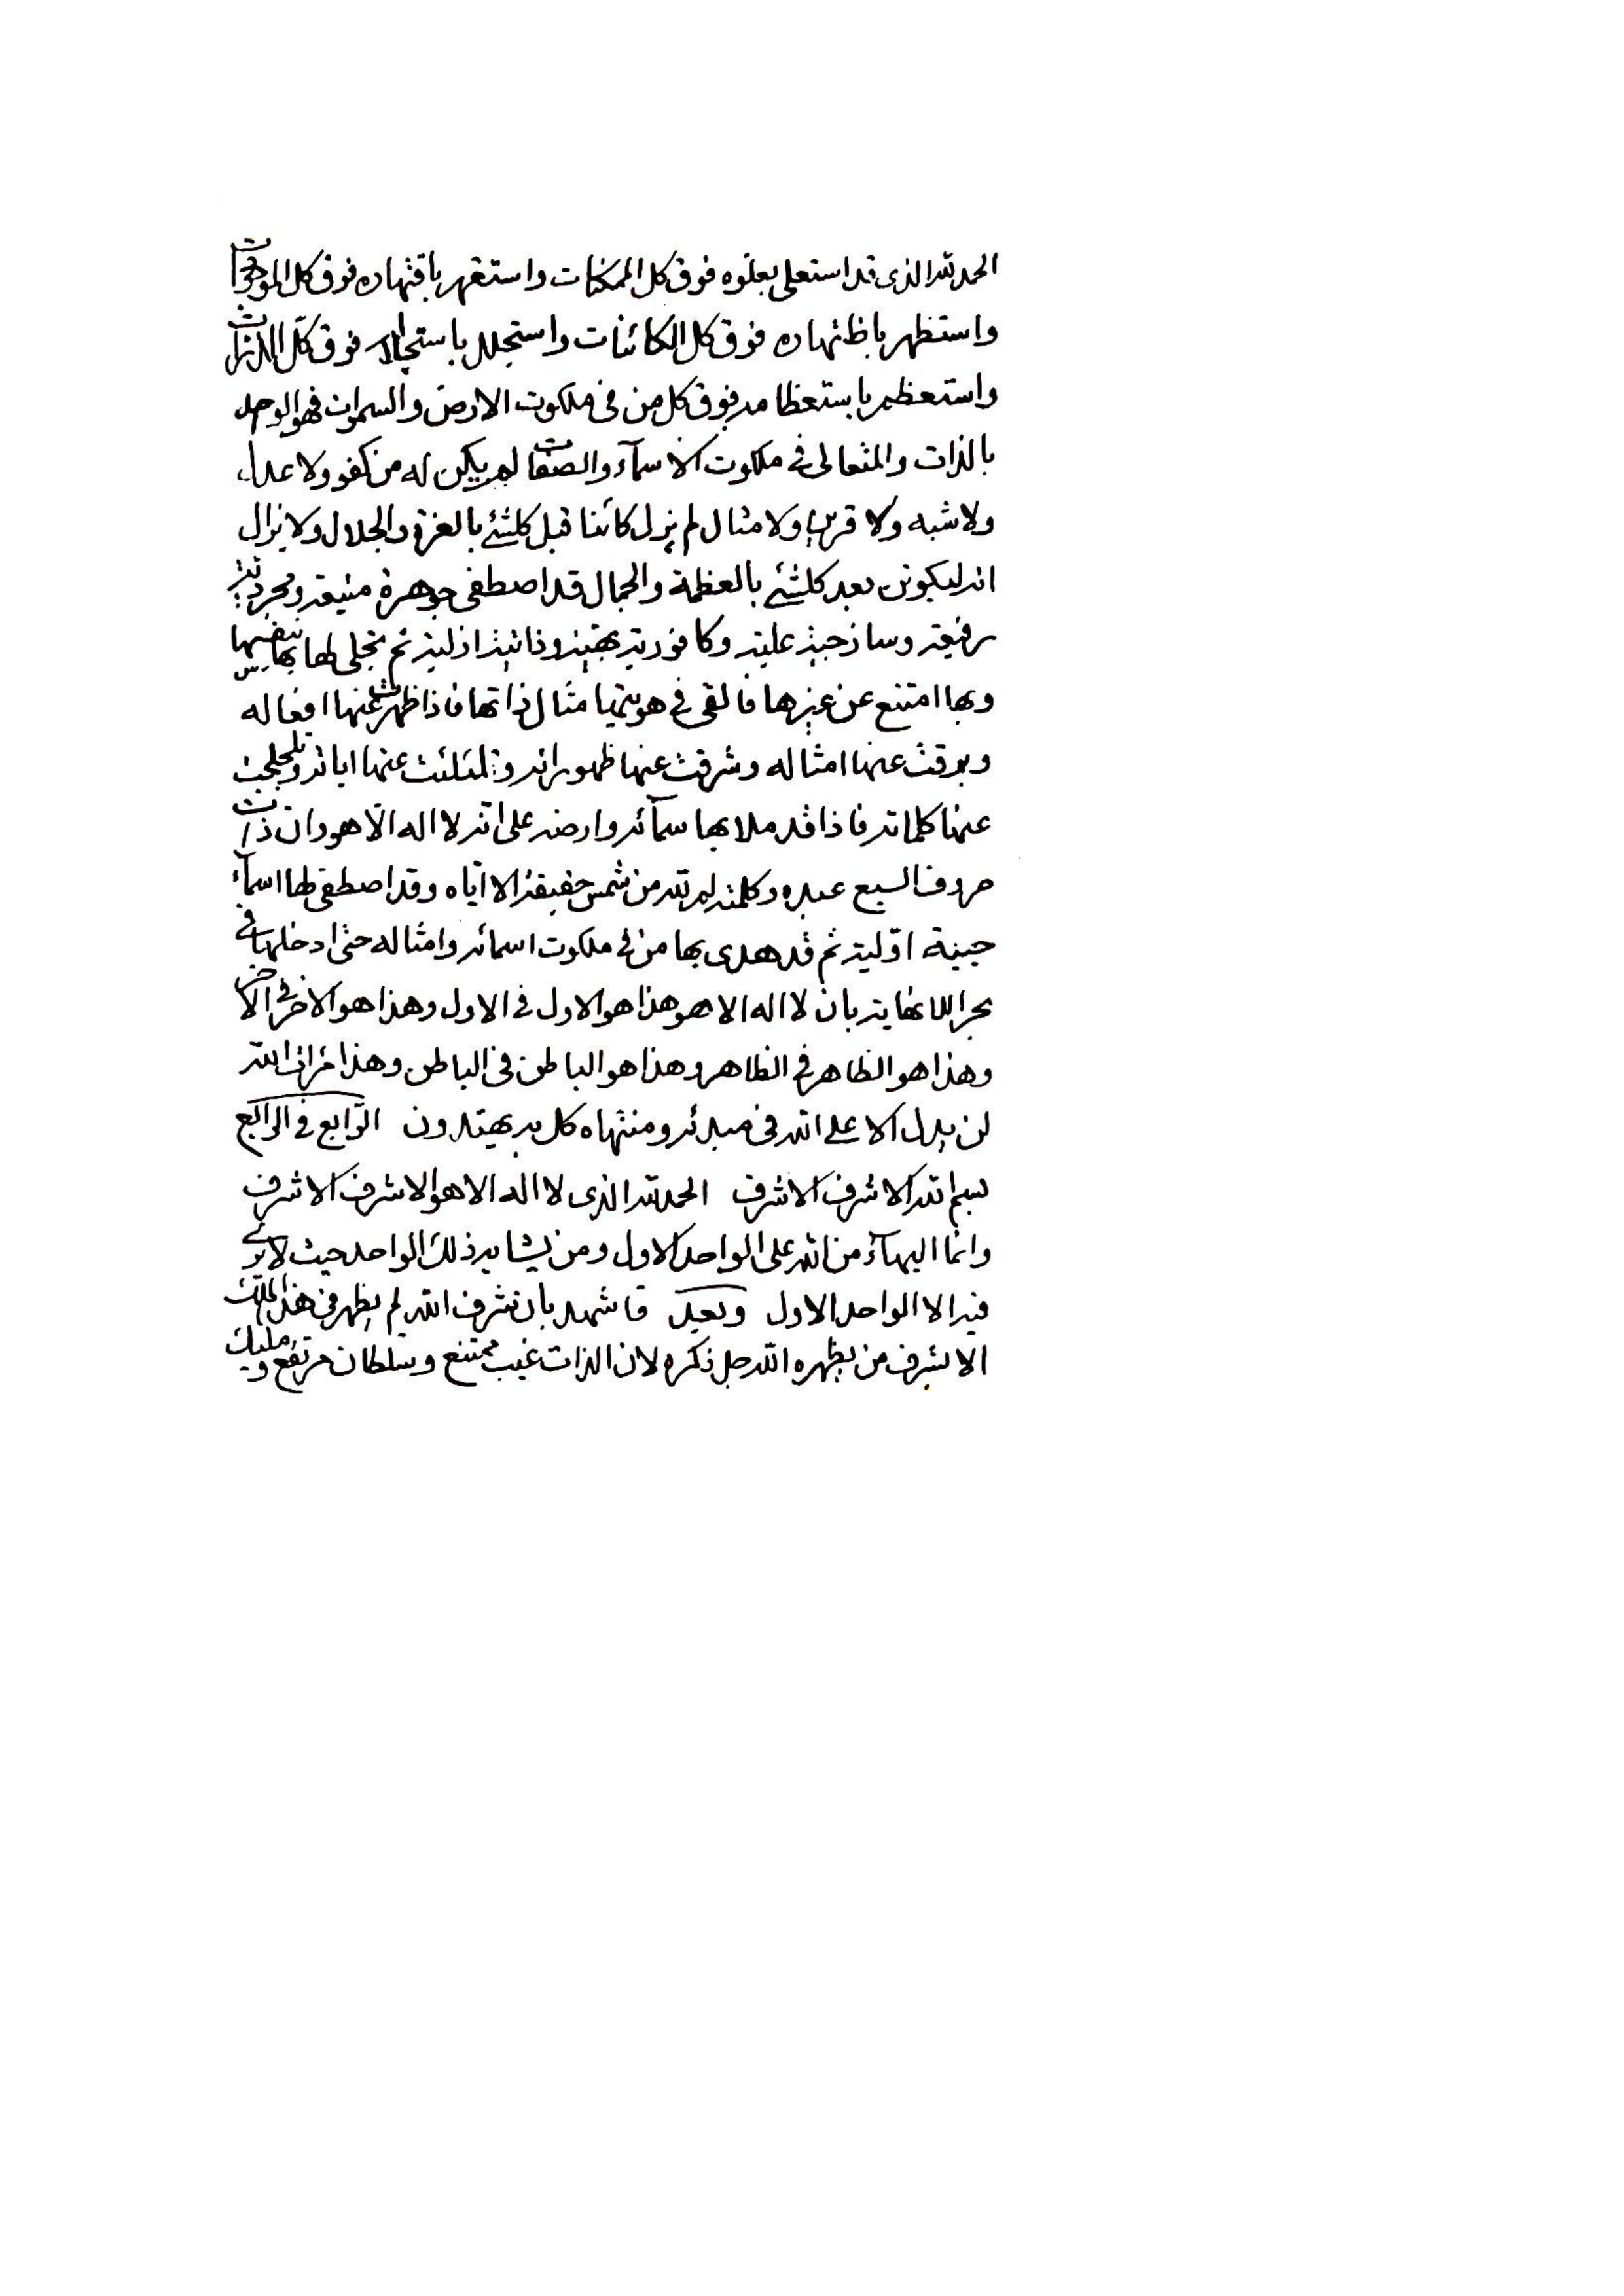 الحمد لله الذى قد استعلى بعلوه فوق كل الممكنات واستقهر باقتهاره فوق كل الموجودات
واستظهر باظتهاره فوق كل الكائنات واستجلل باستجلاله فوق كل الذرات
واستعظم باستعظامه فوق كل من فى ملكوت الارض والسموات فهو الواحد
بالذات والمتعالى فى ملكوت الاسمآء والصفات لم يكن له من كفو ولا عدل
ولا شبه ولا قرين ولا مثال لم يزل كائنا قبل كلشئ بالعزة والجلال ولا يزال
انه ليكونن بعد كلشئ بالعظمة والجمال قد اصطفى جوهرة منيعة ومجردة
رفيعة وساذجية علية وكافورية بهية وذاتية ازلية ثم تجلى لها بها بنفسها
وبها امتنع عن غيرها فالقى فى هويتها مثال ذاتها فاذا ظهرت عنها افعاله
وبرقت عنها امثاله وشرقت عنها ظهوراته وتلئلئت عنها اياته وتلجلجت
عنها كلماته فاذا قد ملا بها سمآئه وارضه على انه لا اله الا هو وان ذات
حروف السبع عبده وكلمته لم تبد من شمس حقيقة الا اياه وقد اصطفى لها اسمآء
حيية اولية ثم قد هدى بها من فى ملكوت اسمائه وامثاله حتى ادخلها فى
بحر اللانهاية بان لا اله الا هو هذا هو الاول فى الاول وهذا هو الاخر فى الاخر
وهذا هو الظاهر فى الظاهر وهذا هو الباطن فى الباطن وهذا مرات الله
لن يدل الا على الله فى مبدئه ومنتهاه كل به يهتدون الرابع فى الرابع
بسم الله الاشرف الاشرف الحمد لله الذى لا اله الا هو الاشرف الاشرف
وانما البهآء من الله على الواحد الاول ومن يشابه ذلك الواحد حيث لا يرى
فيه الا الواحد الاول وبعد فاشهد بان تشرف الله لم يظهر فى هذا الملك
الا بشرف من يظهره الله جل ذكره لان الذات غيب ممتنع وسلطان مرتفع ومليك